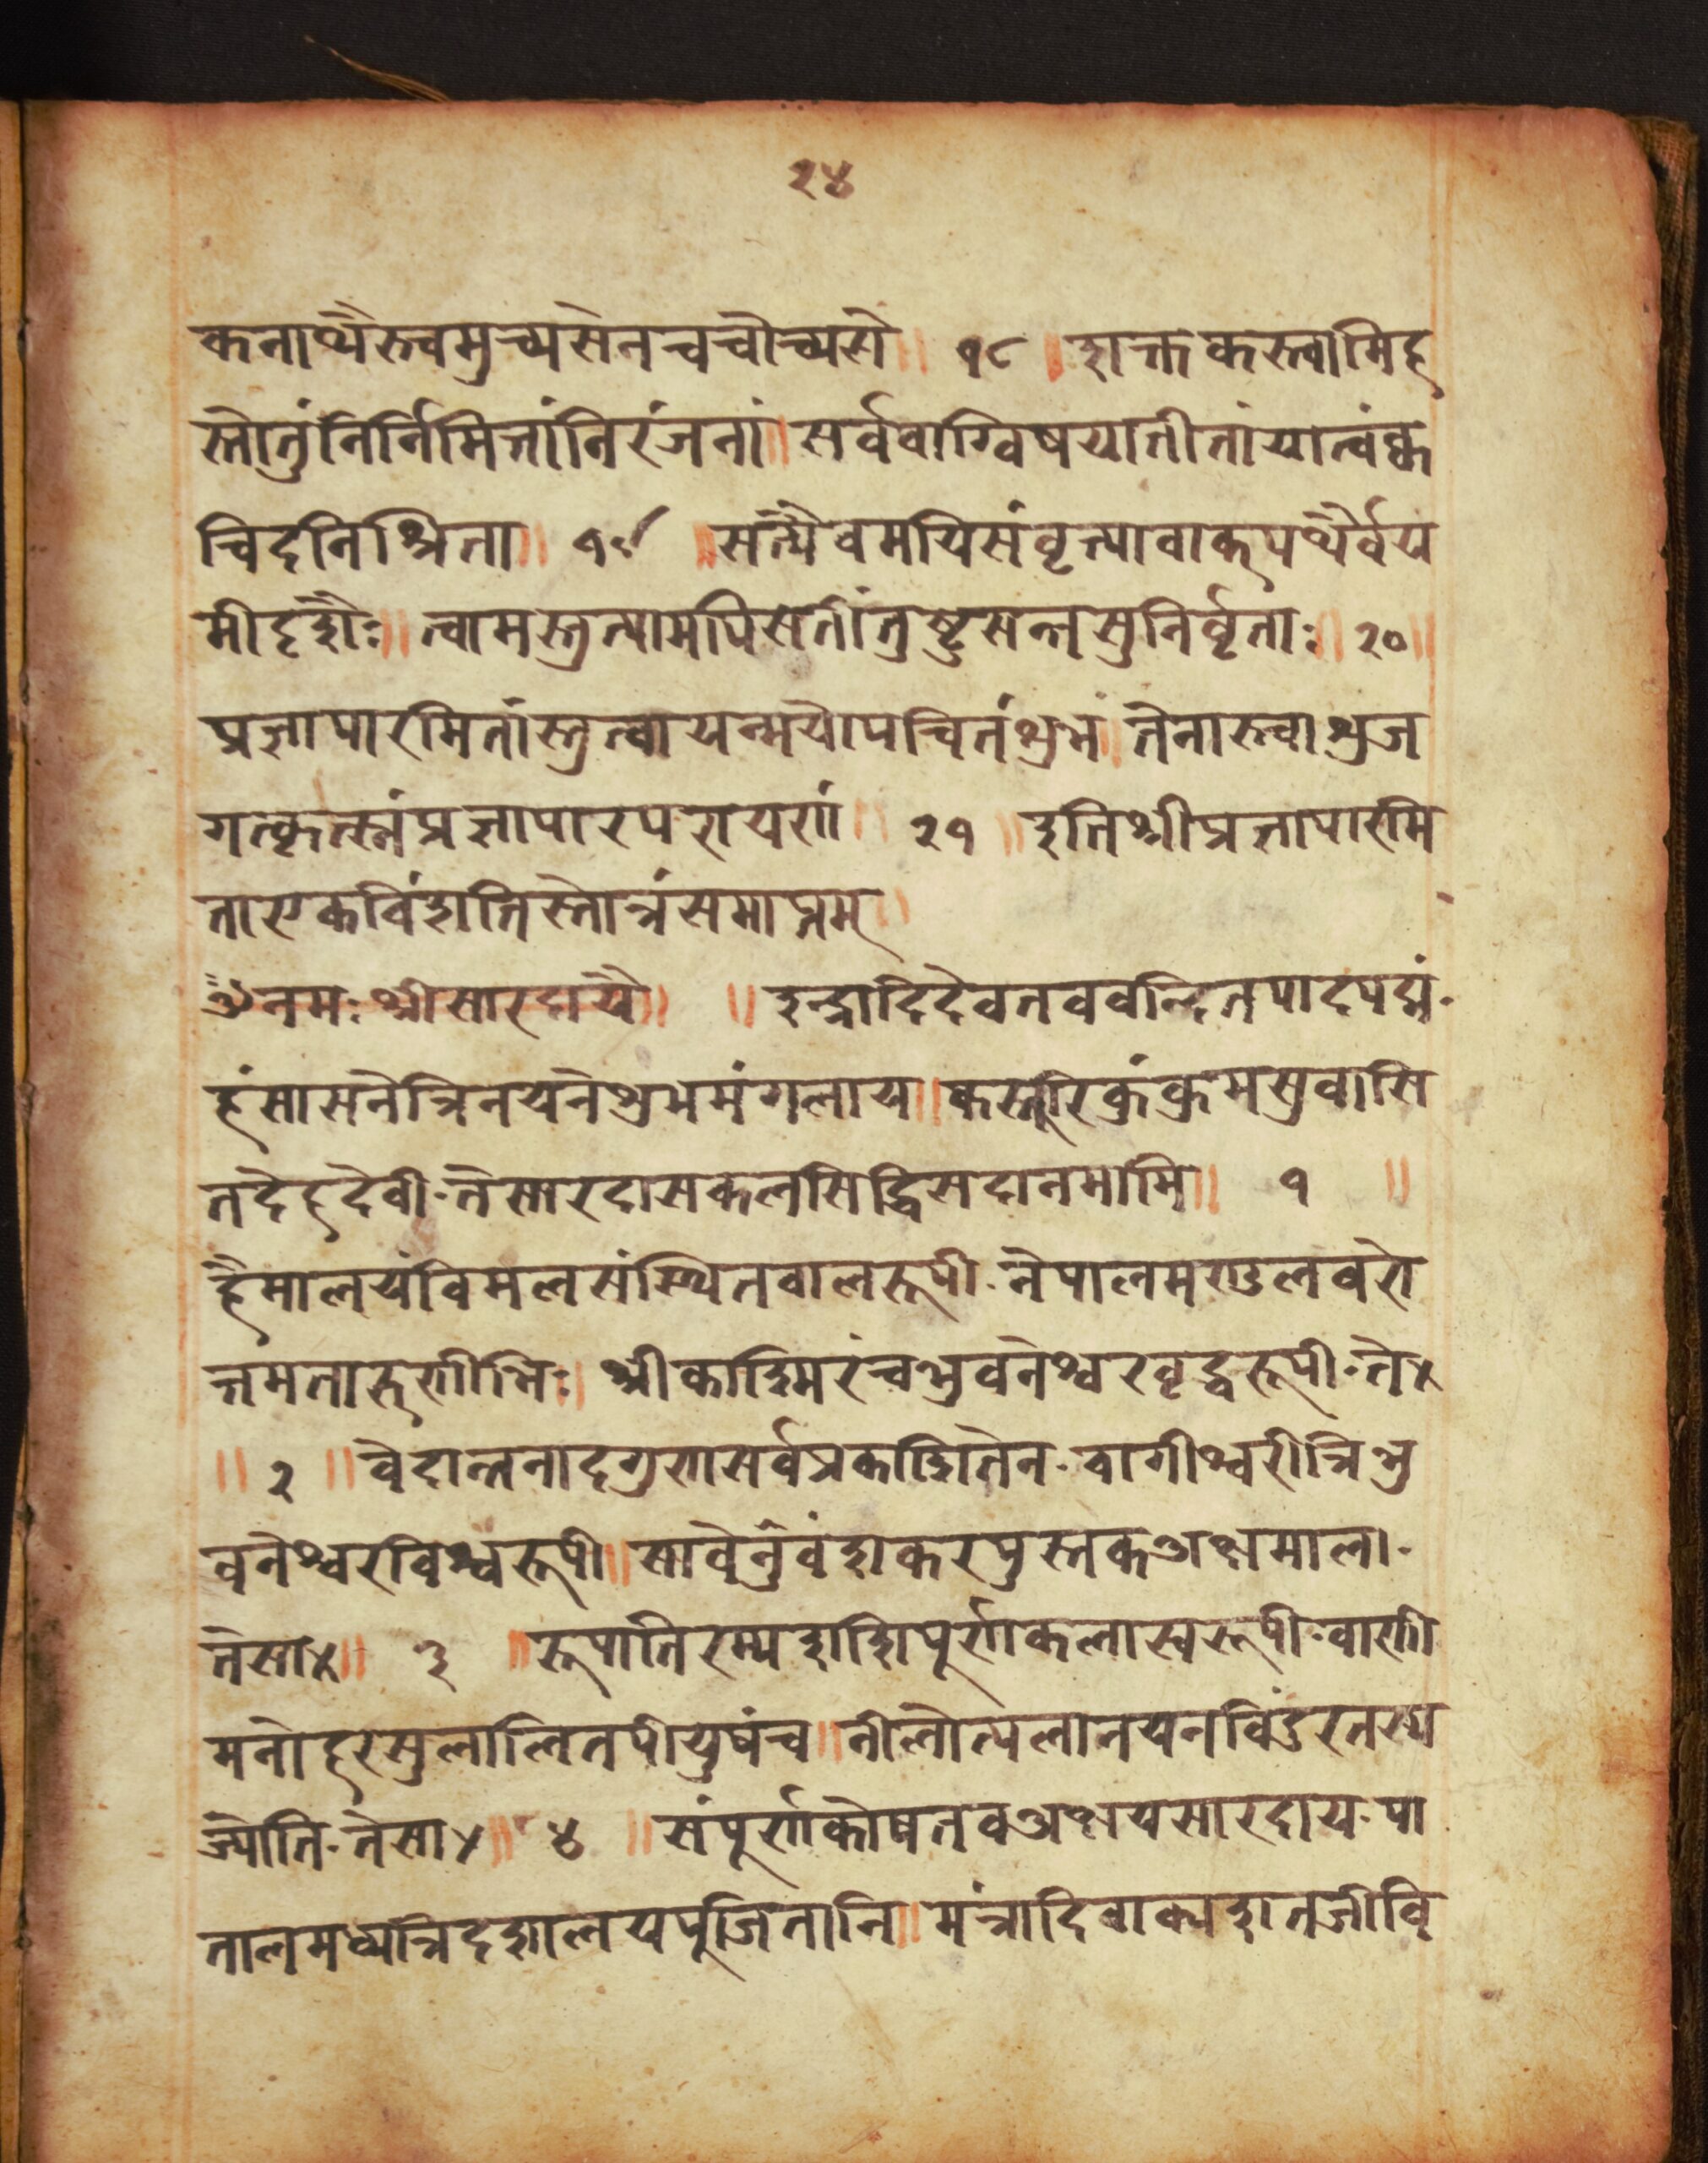 २४
कनाथैस्त्वमुच्यसेनचचोच्यसे॥ १८ ॥शक्तकस्त्वामिह
स्तोतुंनिर्निमित्तांनिरंजनां॥सर्ववाग्विषयातीतांयात्वंक्व
चिदनिश्रिता॥ १९ ॥सत्यैवमयिसंवृत्यावाक्पथैर्वय
मीदृशैः॥त्वामस्तुत्यामपिसेतींतुष्टुसन्तसुनिर्वृताः॥ २० ॥
प्रज्ञापारमितांस्तुत्वायन्मयोपचितंशुभं॥तेनास्त्वाशुज
गत्कृत्स्नंप्रज्ञापारपरायणां॥ २१ ॥इतिश्रीप्रज्ञापारमि
ताएकविंशतिस्तोत्रंसमाप्तम्॥
ॐनमःश्रीसारदायै॥ ॥इन्द्रादिदेवतववन्दितपादपद्मं·
हंसासनेत्रिनयनेशुभमंगलाय॥कस्तूरिकुंकुमसुवासि
तदेहदेवी·तेसारदासकलसिद्धिसदानमामि॥ १ ॥
हैमालयंविमलसंस्थितवालरूपी·नेपालमण्डलवरो
त्तमतारुणीभिः॥श्रीकाश्मिरंचभुवनेश्वरवृद्धरूपी·ते४
॥ २ ॥वेदान्तनादगुणसर्वप्रकाशितेन·वागीश्वरीत्रिभु
वनेश्वरविश्वरूपी॥सावेर्नुवंशकरपुस्तकअक्षमाला·
तेसा४॥ ३ ॥रूपातिरम्यशशिपूर्णकलास्वरूपी·वाणी
मनोहरसुलालितपीयुषंच॥नीलोत्पलानयनविंदुरतस्य
ज्योति·तेसा४॥ ४ ॥संपूर्णकोषतवअक्षयसारदाय·पा
तालमध्यत्रिदशालयपूजितानि॥मंत्रादिवाक्यशतजीवि